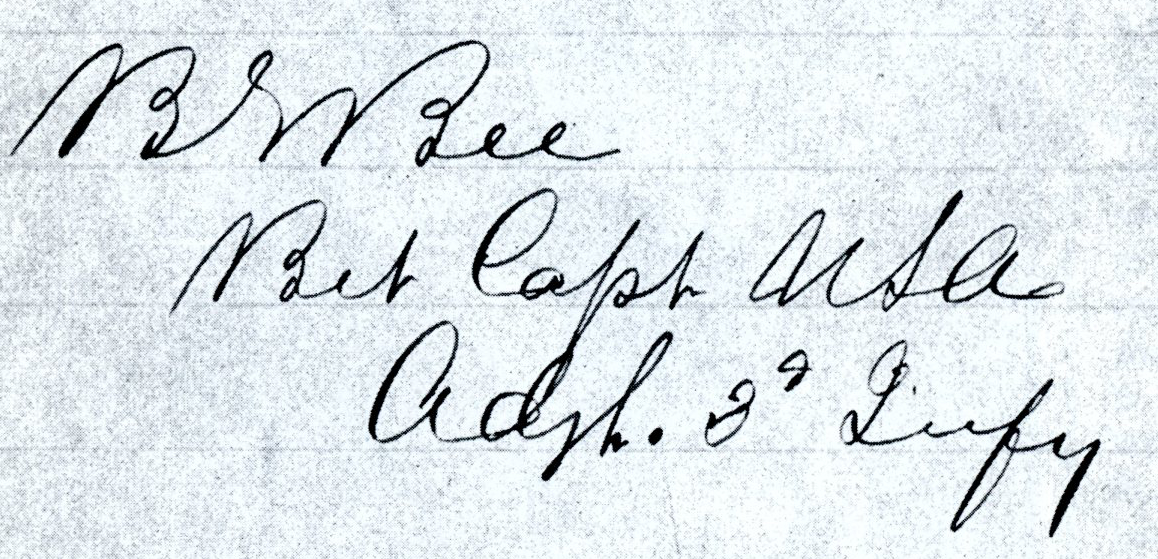 B E Bee
Bvt Capt USA
Adjt. 3d Infy